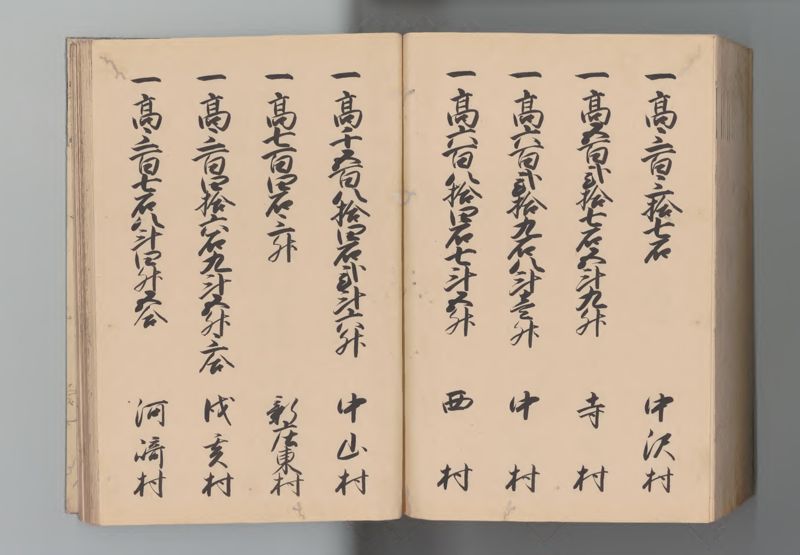 一高三百三拾七石 中沢村
一高五百弐拾七石五斗九升 寺村
一高六百弐拾九石八斗壱升 中村
一高六百八拾四石七斗五升 西村
一高千五百八拾四石弐斗六八升 中山村
一高七百四石三升 新庄東村
一高三百四拾六石九斗五升三合 村
一高三百七石八斗四升五合 河崎村